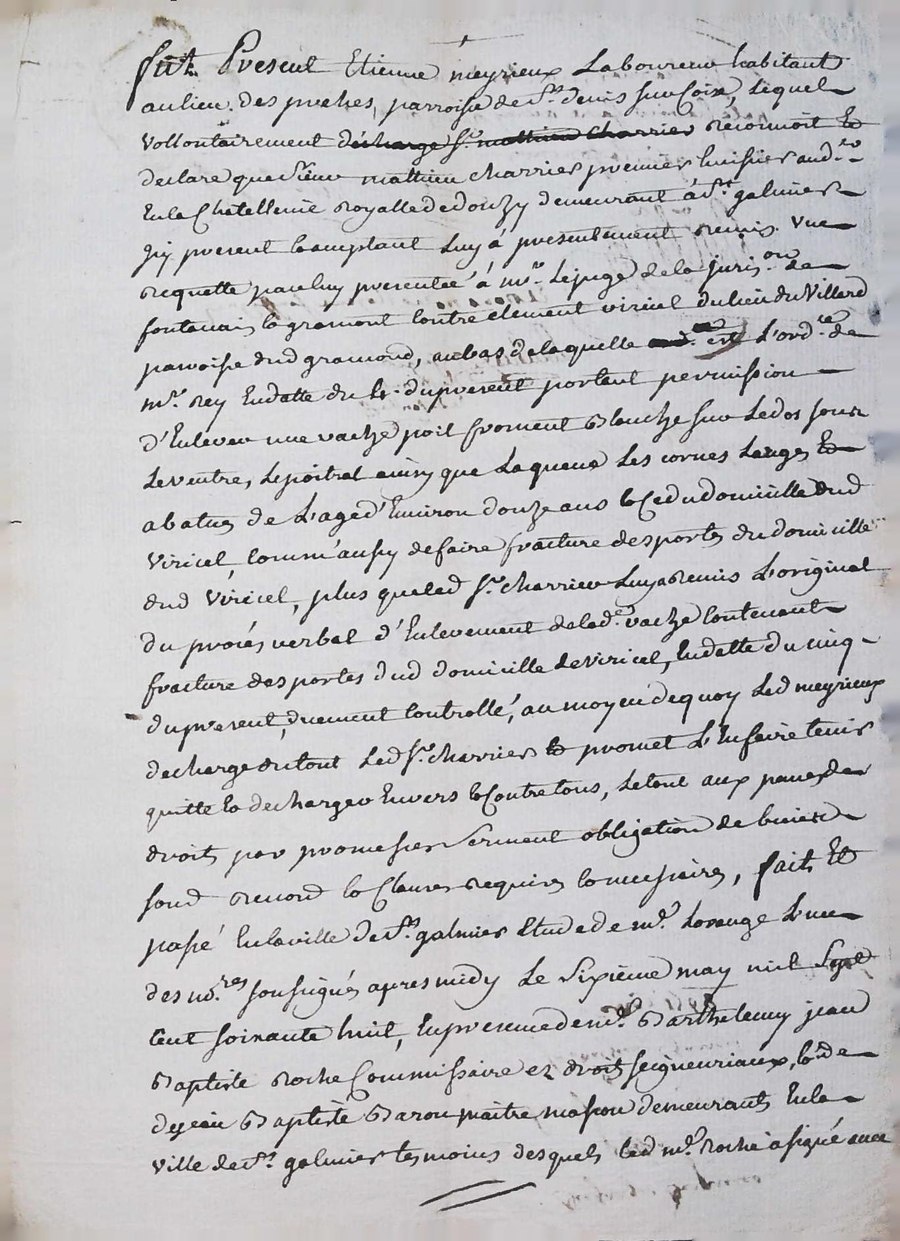 fut Present Etienne meyrieux Laboureur habitant
au lieu des proches, parroisse de St. denis sur Coize, Lequel
vollontairement décharge Sr. mathieu Charrier reconnoit Et
declare que sieur mathieu charrier premier huissier aud.re
En la Chatellenie royalle de donzy demeurant à St. galmier
icy present Comptant Luy à presentement remis vne
requette par luy presentée à mr. Le juge de la juris.on de
fontanais le gramont Contre clement viricel du lieu du Villard
parroisse dud gramond, au bas de laquelle est L'ord.ce de
mr. rey En datte du 4. du present portant permission
d'Enlever une vache poil froment Blanche sur Le dos sous
Le ventre, Le poitral ainsy que La queue Les cornes Larges Et
abatues de L'age d'Environ douze ans Et Ce du domicille dud
Viricel, comm'aussy de faire fracture des portes du domicille
dud Viricel, plus que led Sr. charrier Luy a remis L'original
du procés verbal d'Enlevement de lad.e vache Contenant
fracture des portes dud domicille de Viricel, En datte du cinq
du present, duement Controllé, au moyen de quoy Led meyrieux
decharge du tout Led Sr. charrier Et promet L'En faire tenir
quitte Et decharger Envers Et Contre tous, Le tout aux peines de
droit par promesses Serment obligation de biens
renond Et Clauses requises Et necessaires, fait Et
passé En la ville de St. galmier Etude de mr. Lorange L'un
des no.res soussignés apres midy Le Sixieme may mil Sept
Cent soixante huit, En presence de mr. Barthelemy jean
Baptiste roche Commissaire ez droits seigneuriaux, Et de
de jean Baptiste Baron maitre masson demeurants En la
ville de St. galmier temoins desquels led mr. roche à signé avec